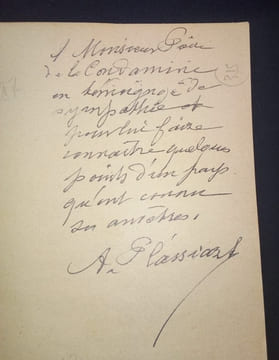 A Monsieur
de la Condamine
en témoignage de
sympathie et
pour lui faire
connaître quelques
points d'un pays
qu'ont connu
ses ancêtres.
A. Plassiart